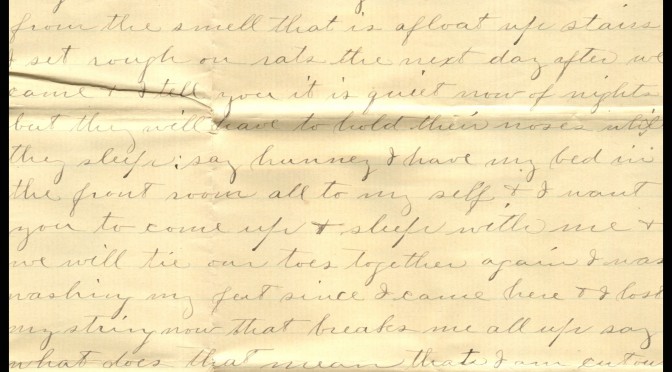 from the smell that is afloat up stairs
I set rough on rats the next day after we
came & I tell you it is quiet now of nights
but they will have to hold their noses while
they sleep: say hunney I have my bed in
the front room all to my self & I want
you to come up & sleep with me &
we will tie our toes together again I was
washing my feet since I came here & I lost
my string now that breaks me all up say
what does that mean that I am cut out